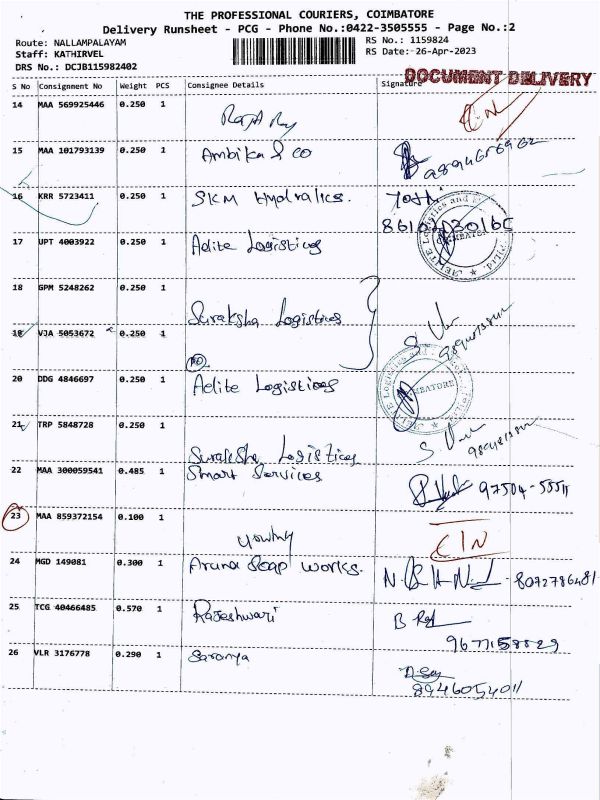 THE PROFESSIONAL COURIERS, COIMBATORE
Delivery Runsheet - PCG - Phone No.:0422-3505555 - Page No.:2
Route: NALLAMPALAYAM RS No.: 1159824
Staff: KATHIRVEL RS Date: 26-Apr-2023
DRS No.: DCJB115982402
DOCUMENT DELIVERY
S No Consignment No Weight PCS Consignee Details Signature
14 MAA 569925446 0.250 1
15 MAA 101793139 0.250 1 Ambika & co
16 KRR 5723411 0.250 1 SKM Hydralics.
17 UPT 4003922 0.250 1 Adite Logistics
18 GPM 5248262 0.250 1
Suraksha Logistics
19 VJA 5053672 0.250 1
20 DDG 4846697 0.250 1 Adite Logistics
21 TRP 5848728 0.250 1
Suraksha Logistics
22 MAA 300059541 0.485 1 Smart Services 97504-55511
23 MAA 859372154 0.100 1
24 MGD 149081 0.300 1 Aruna Soap works. 8072786481
25 TCG 40466485 0.570 1 Rajeshwari
9677158829
26 VLR 3176778 0.290 1 Saranya
8946054011